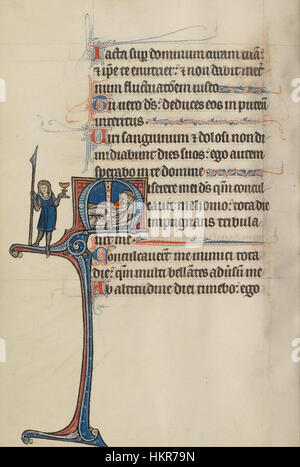 Iacta sup dominum curam tuā
& ipe te enutriet : & non dabit in et
num fluctuatōem iusto
Tu vero ds : deduces eos in puteū
interitus
Viri sanguinum & dolosi non di
midiabunt dies suos : ego autem
sperabo in te domine
Miserere mei ds qm concul
cavit me homo : tota die
impugnans tribula
vit me
Conculcaverūt me inimici tota
die : qm multi bellātes adūsum me
Ab altitudine diei timebo : ego
alamy
HKR79N
www.alamy.com